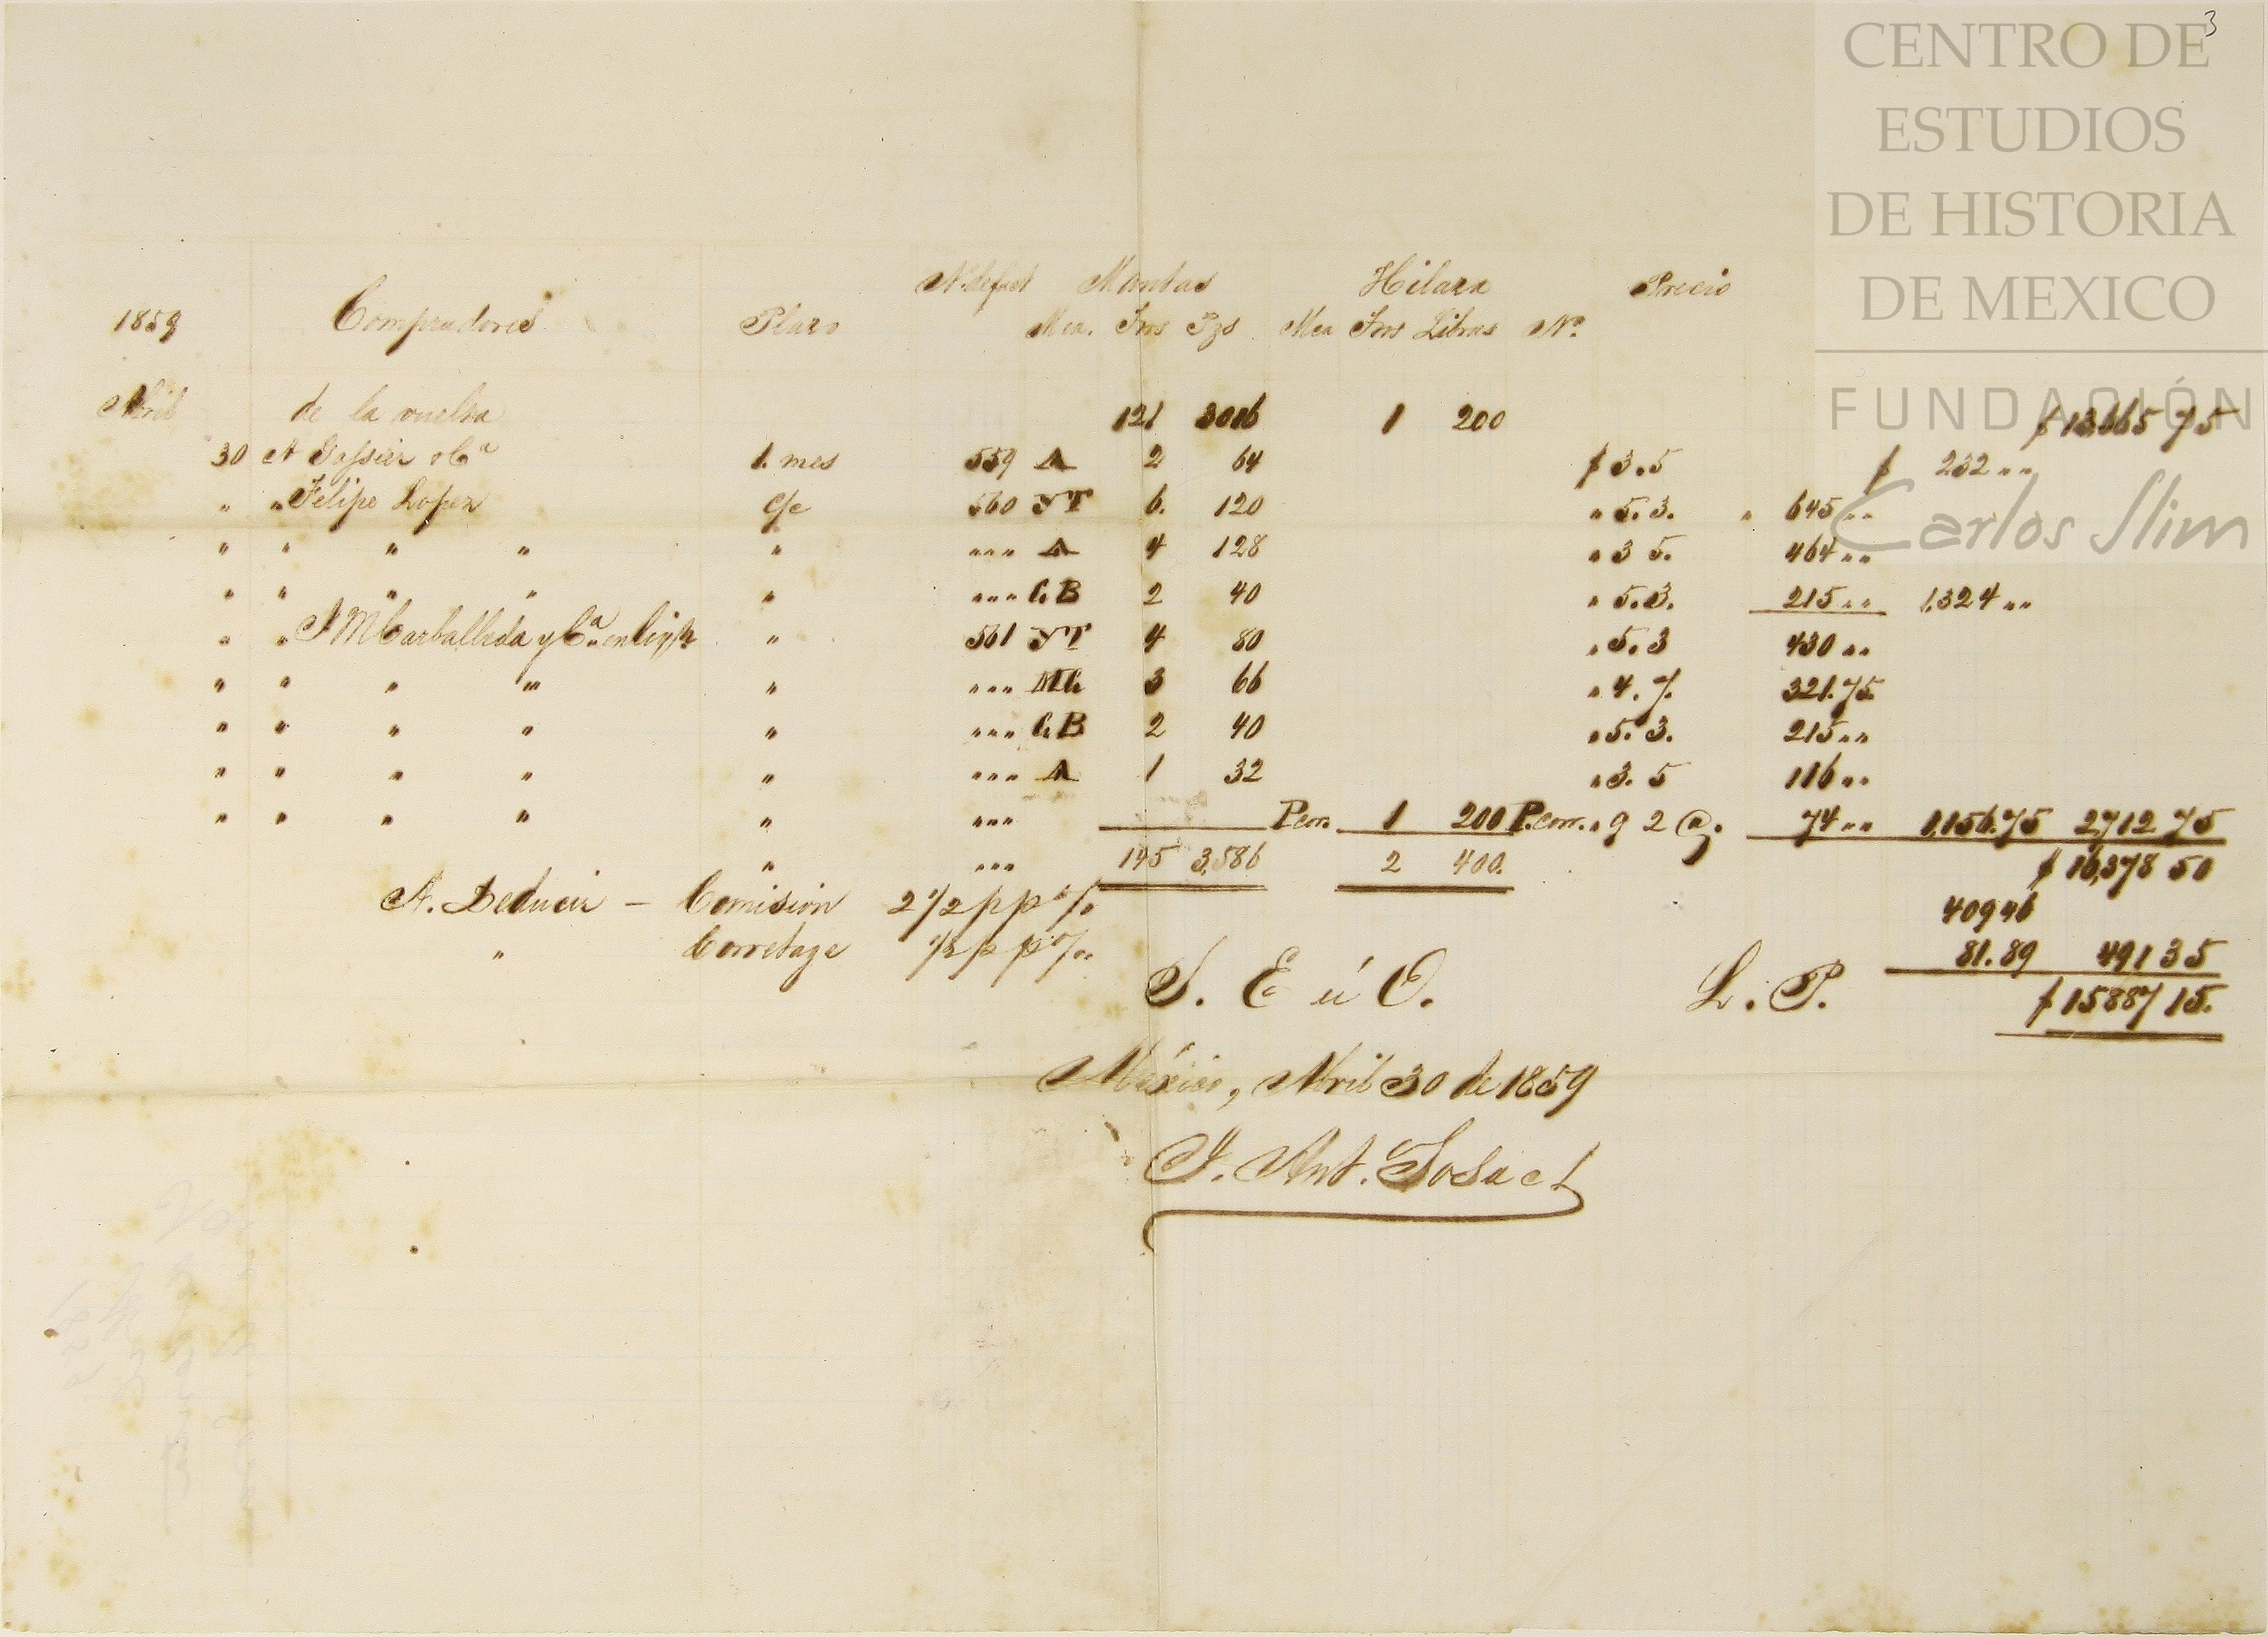 3
CENTRO DE
ESTUDIOS
DE HISTORIA
DE MEXICO
FUNDACIÓN
Carlos Slim
Nº de fact Mantas Hilaza Precio
1859 Compradores Plazo Mca. Tros Pzs Mca Tros Libras Nº
Abril de la vuelta 121 3016 1 200 $13,665 75
30 A Gassier & Cª 1. mes 559 A 2 64 $ 3.5 $ 232 " "
" " Felipe Lopez c/c 560 YT 6. 120 " 5. 3. " 645 " "
" " " " " " " " A 4 128 " 3 5. 464 " "
" " " " " " " " CB 2 40 " 5.3. 215 " " 1,324 " "
" " J M Carballeda y Cª en " 561 YT 4 80 " 5. 3 430 " "
" " " " " " " " MC 3 66 " 4. 7. 321.75
" " " " " " " " CB 2 40 " 5. 3. 215 " "
" " " " " " " " A 1 32 " 3. 5 116 " "
" " " " " " " " P.cor. 1 200 P.corr. " 9 2 @. 74 " " 1,156.75 2,712 75
" " " " 145 3,586 2 400. $ 16,378 50
A. Deducir — Comision 2 1/2 p p % 409 46
" Corretage 1/2 p p % 81.89 491 35
S. E ú O. L. P. $ 15887 15.
México, Abril 30 de 1859
J. Ant. Sosa